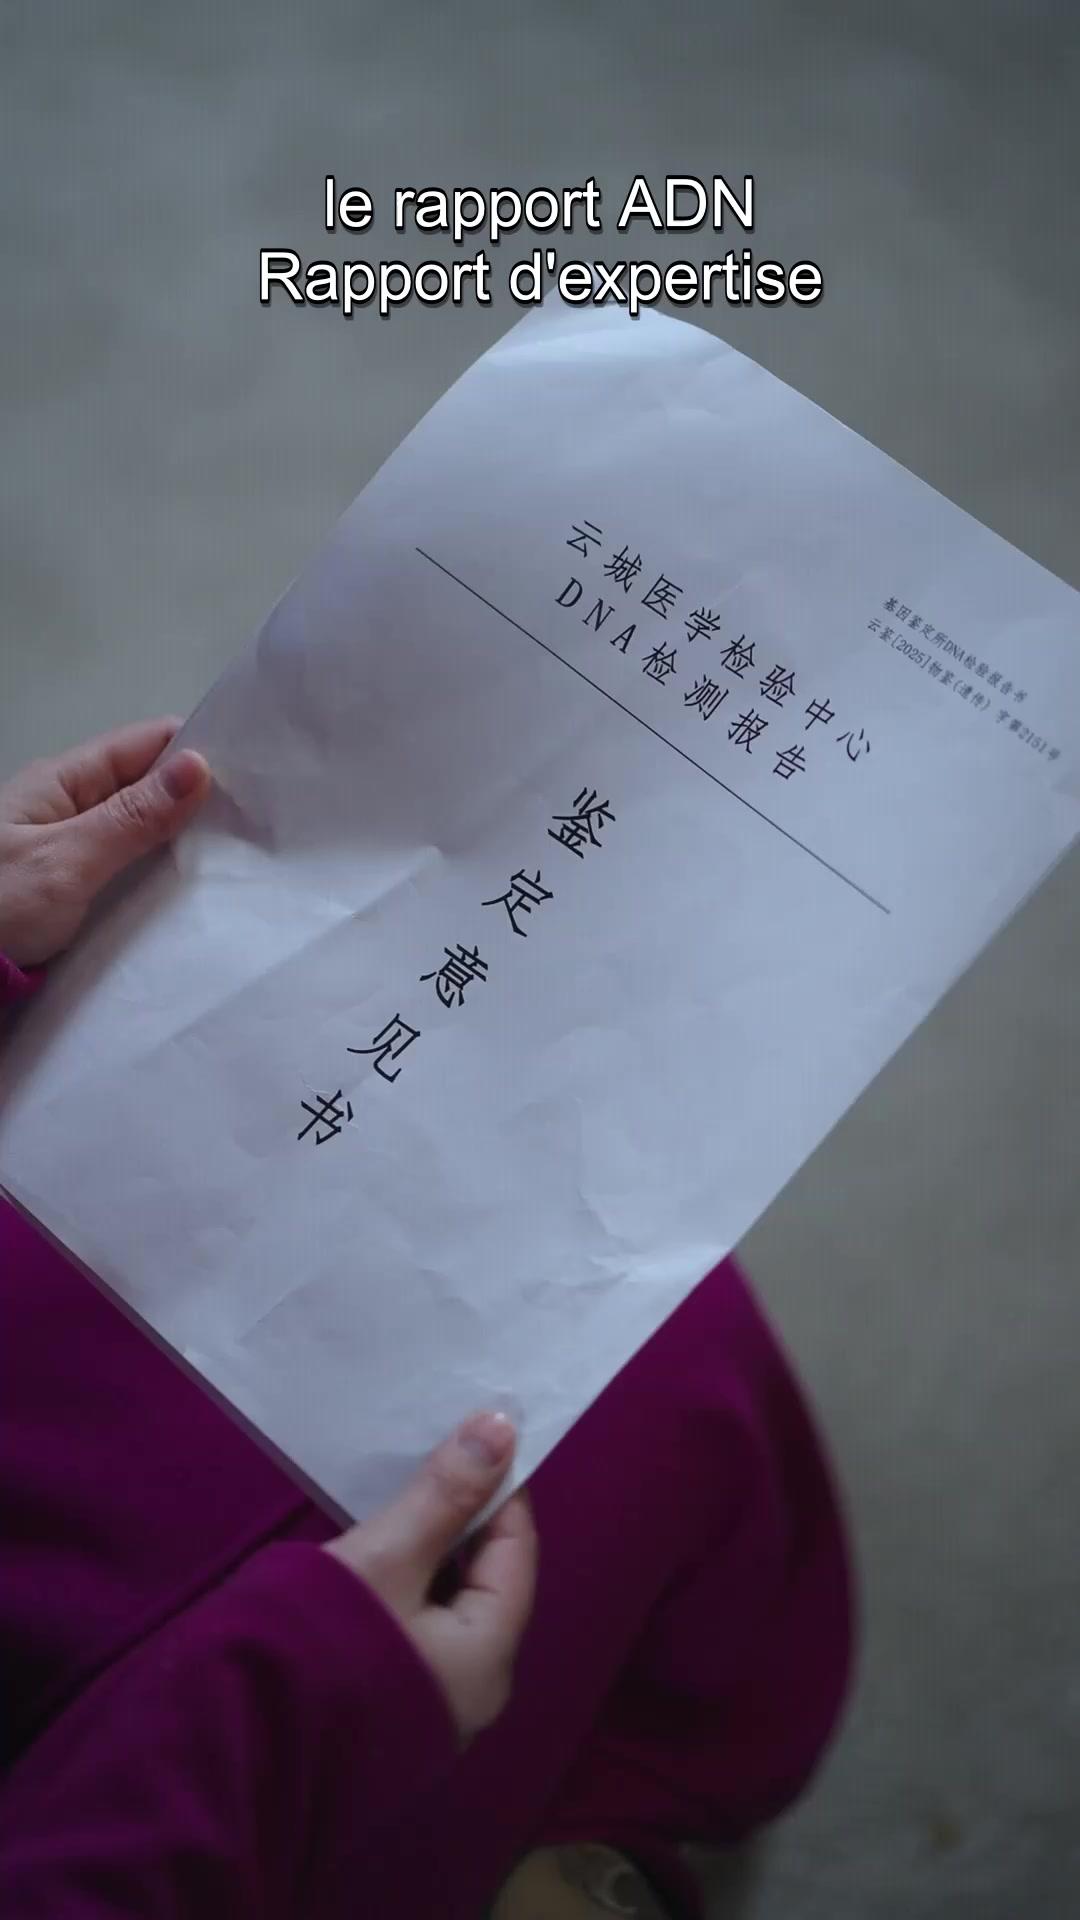 le rapport ADN
Rapport d'expertise
基因鉴定所DNA检验报告书
云鉴[2025]物鉴(遗传)字第2151号
云城医学检验中心
DNA检测报告
鉴定意见书